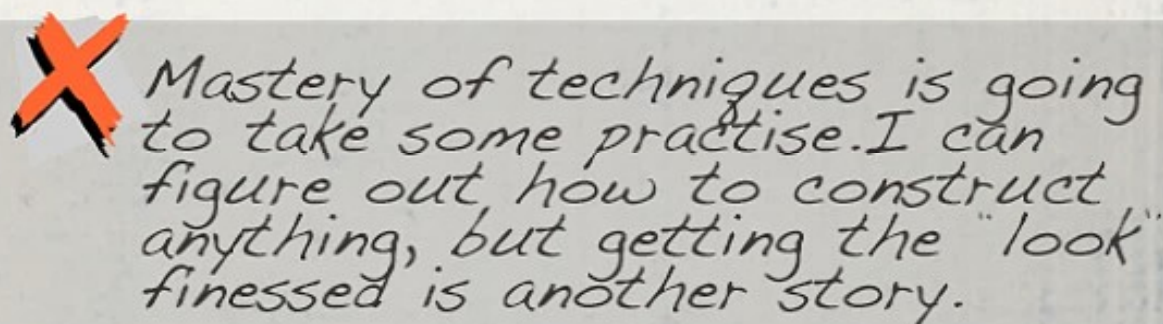 Mastery of techniques is going
to take some practise.I can
figure out how to construct
anything, but getting the "look"
finessed is another story.